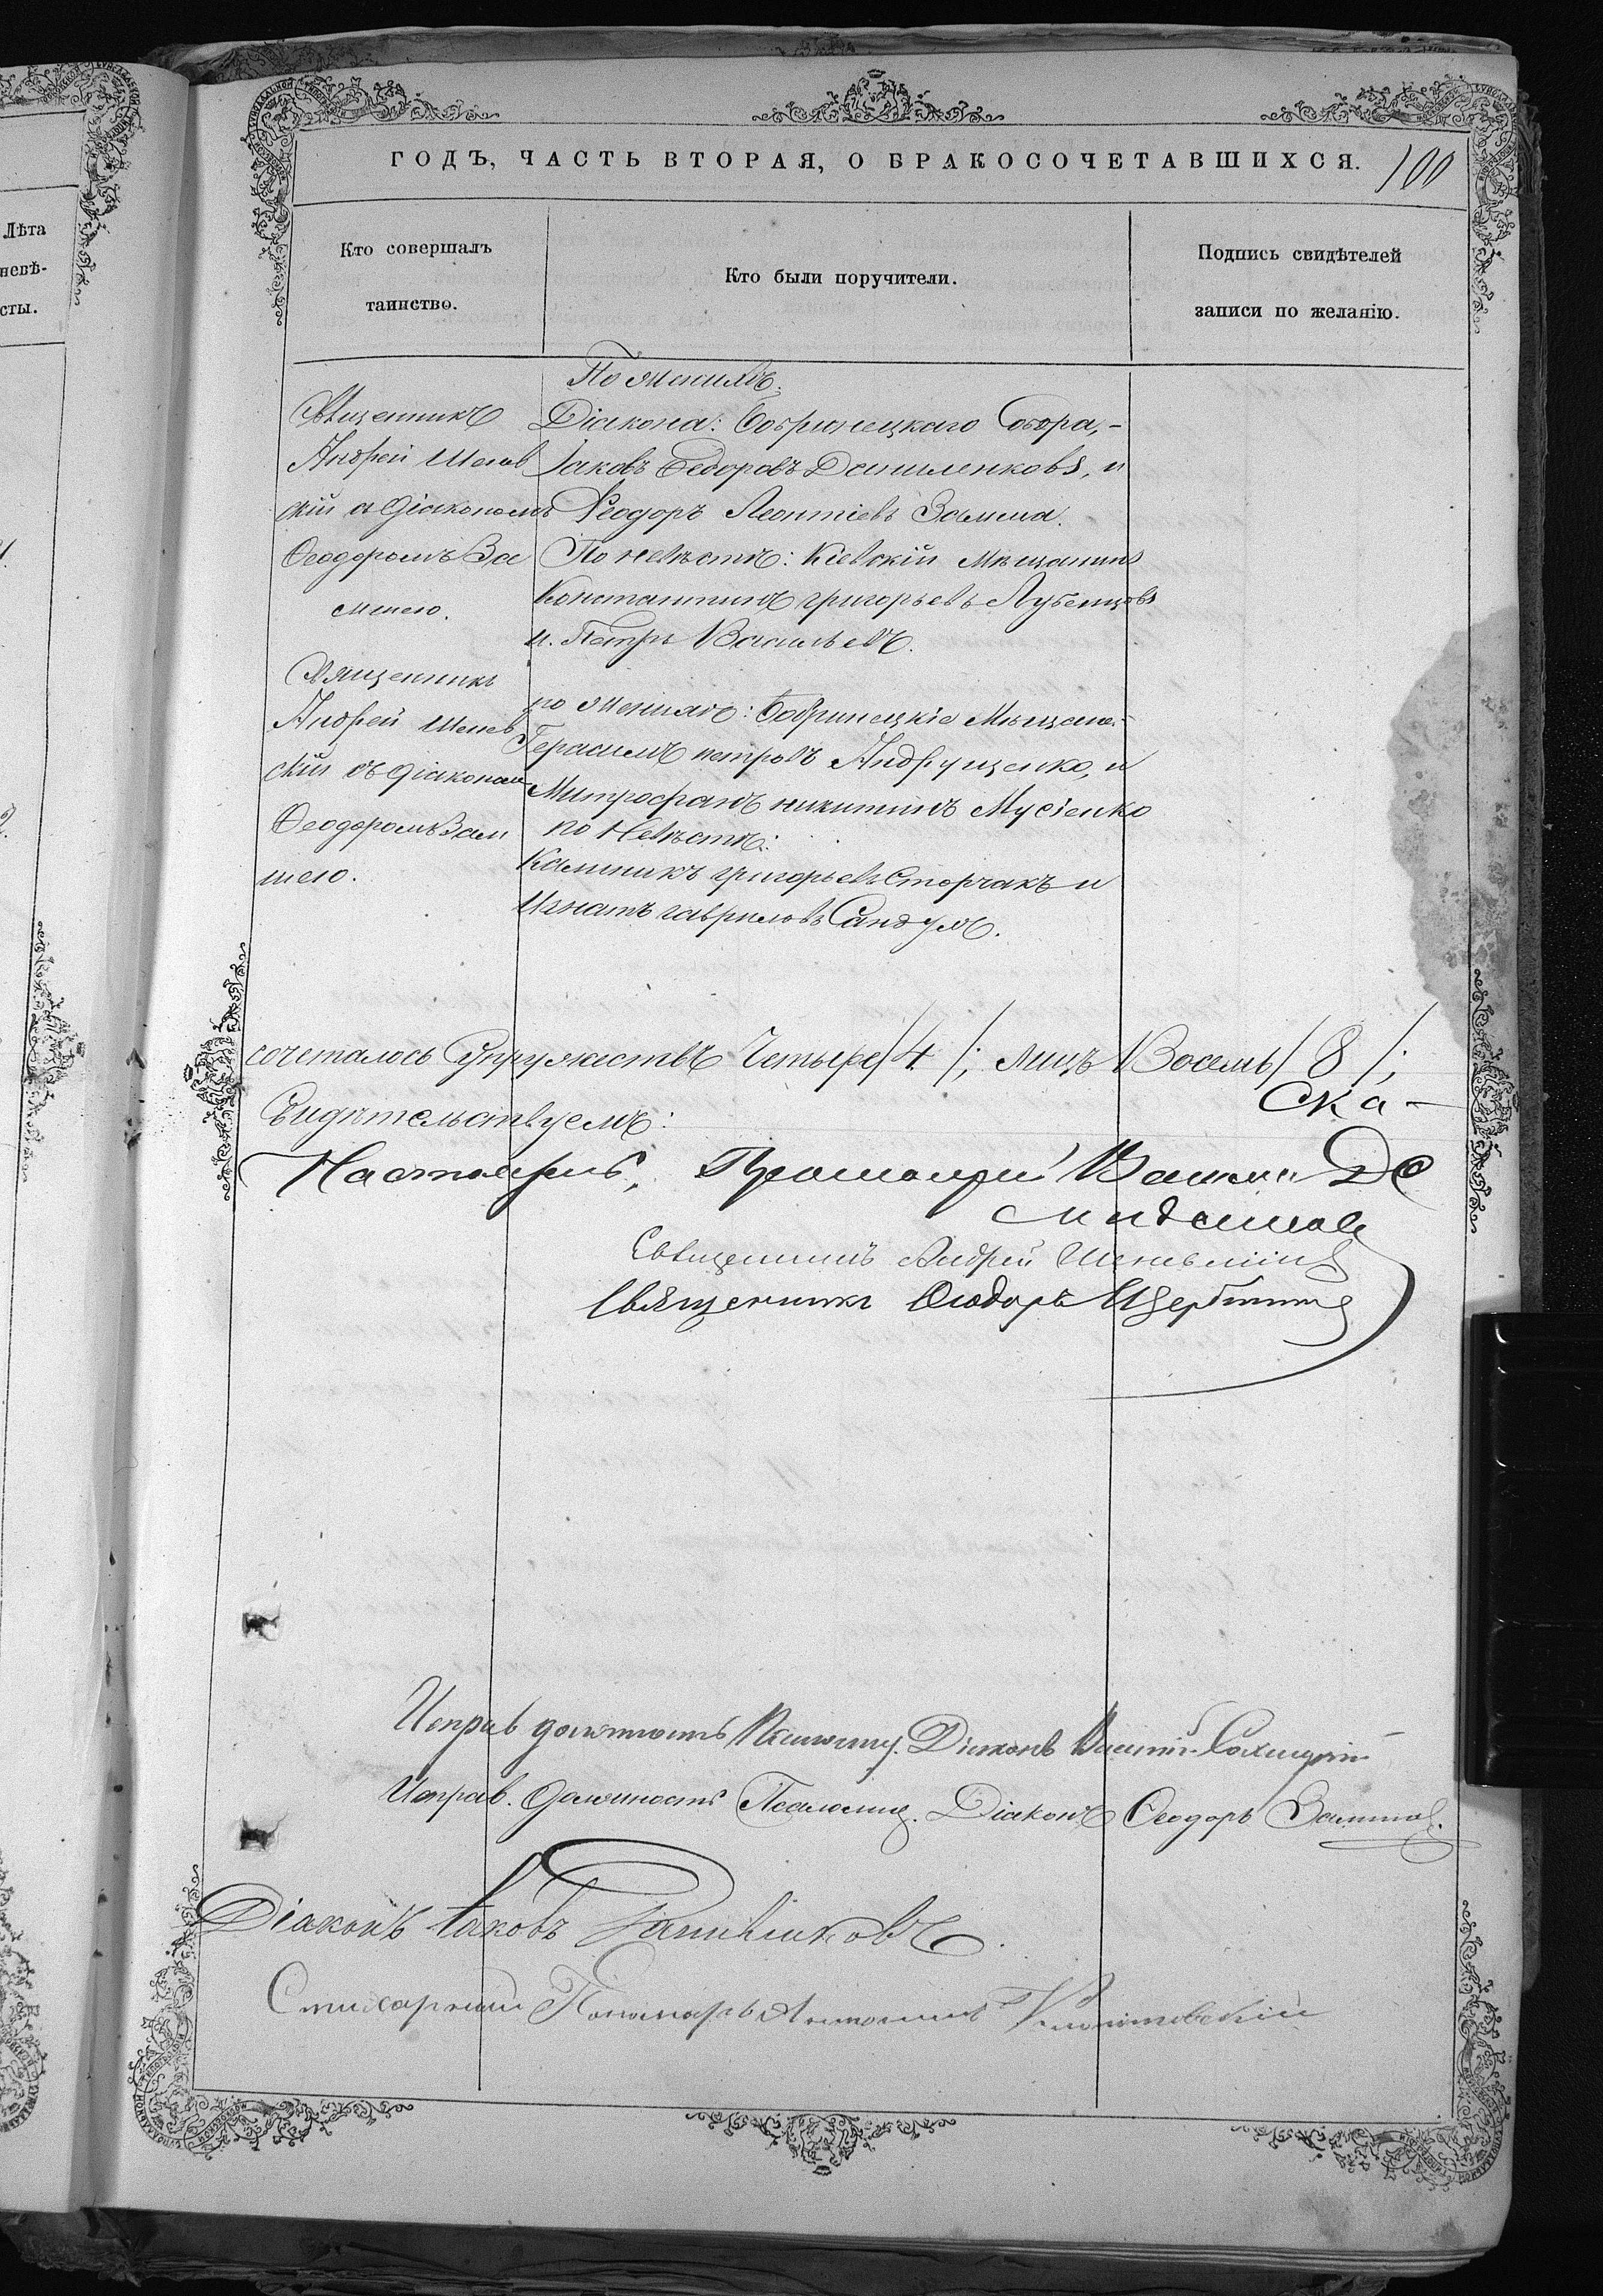 ГОДЪ, ЧАСТЬ ВТОРАЯ, О БРАКОСОЧЕТАВШИХСЯ.
100
Лѣта
невѣ-
сты.
Кто совершалъ
таинство.
Кто были поручители.
Подпись свидѣтелей
записи по желанію.
Священникъ
Андрей Шенев
скій с діакономъ
Ѳеодоромъ За
мшею.
По женихѣ:
Діакона: Бобринецкаго Собора,-
Іаковъ Ѳедоровъ Даниленковъ, и
Ѳеодоръ Леонтіевъ Замша.
По невѣстѣ: Кіевскій Мѣщанинъ
Константинъ григорьевъ Лубенцовъ
и Петръ Васильевъ.
Священникъ
Андрей Шенев
скій съ діаконом
Ѳеодоромъ Зам
шею.
по женихѣ: Бобринецкіе Мѣщане:
Герасимъ петровъ Андрущенко, и
Митрофанъ никитинъ Мусіенко
по Невѣстѣ:
Калиникъ григорьевъ Сторчакъ и
Игнатъ гавриловъ Сандулъ.
сочеталось Супружествъ Четыре /4/; лицъ Восемь /8/;
Ска-
Свидѣтельствуемъ:
Настоятель, Протоіерей
Священникъ Андрей
Священникъ Ѳеодоръ Щербина
Исправ. должность Псаломщ. Діаконъ
Исправ. должность Псаломщ. Діаконъ Ѳеодоръ Замша.
Діаконъ Іаковъ Даниленковъ.
Стихарный Пономарь